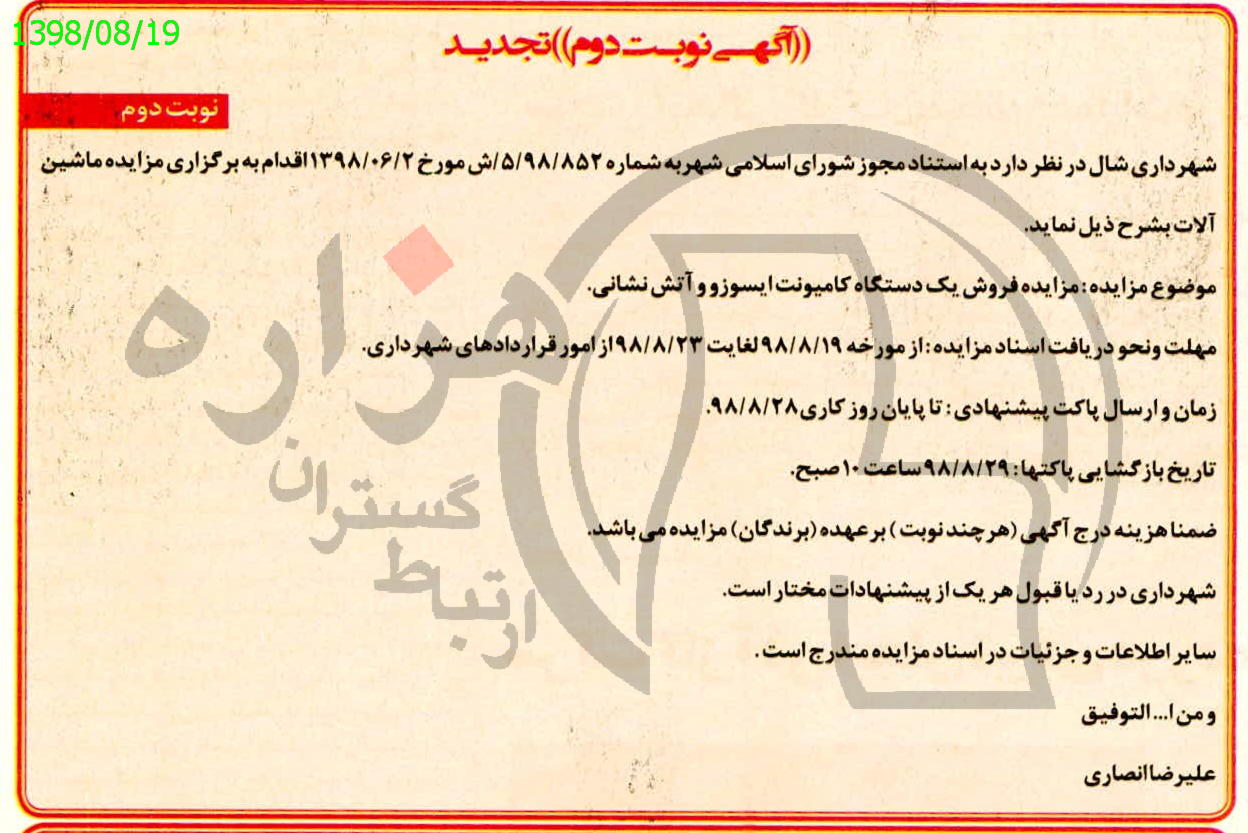 1398/08/19
((آگهی نوبت دوم))تجدید
نوبت دوم
شهرداری شال در نظر دارد به استناد مجوز شورای اسلامی شهربه شماره ۵/۹۸/۸۵۲/ش مورخ ۱۳۹۸/۰۶/۲اقدام به برگزاری مزایده ماشین
آلات بشرح ذیل نماید.
موضوع مزایده :مزایده فروش یک دستگاه کامیونت ایسوزو و آتش نشانی.
مهلت ونحو دریافت اسناد مزایده :از مورخه ۹۸/۸/۱۹لغایت ۹۸/۸/۲۳از امور قراردادهای شهرداری.
زمان و ارسال پاکت پیشنهادی : تا پایان روز کاری۹۸/۸/۲۸.
تاریخ بازگشایی پاکتها: ۹۸/۸/۲۹ساعت ۱۰صبح.
ضمنا هزینه درج آگهی (هر چند نوبت ) بر عهده (برندگان) مزایده می باشد.
شهرداری در رد یا قبول هر یک از پیشنهادات مختار است.
سایر اطلاعات و جزئیات در اسناد مزایده مندرج است .
و من ا... التوفیق
علیرضاانصاری
هزاره
گستران
ارتباط